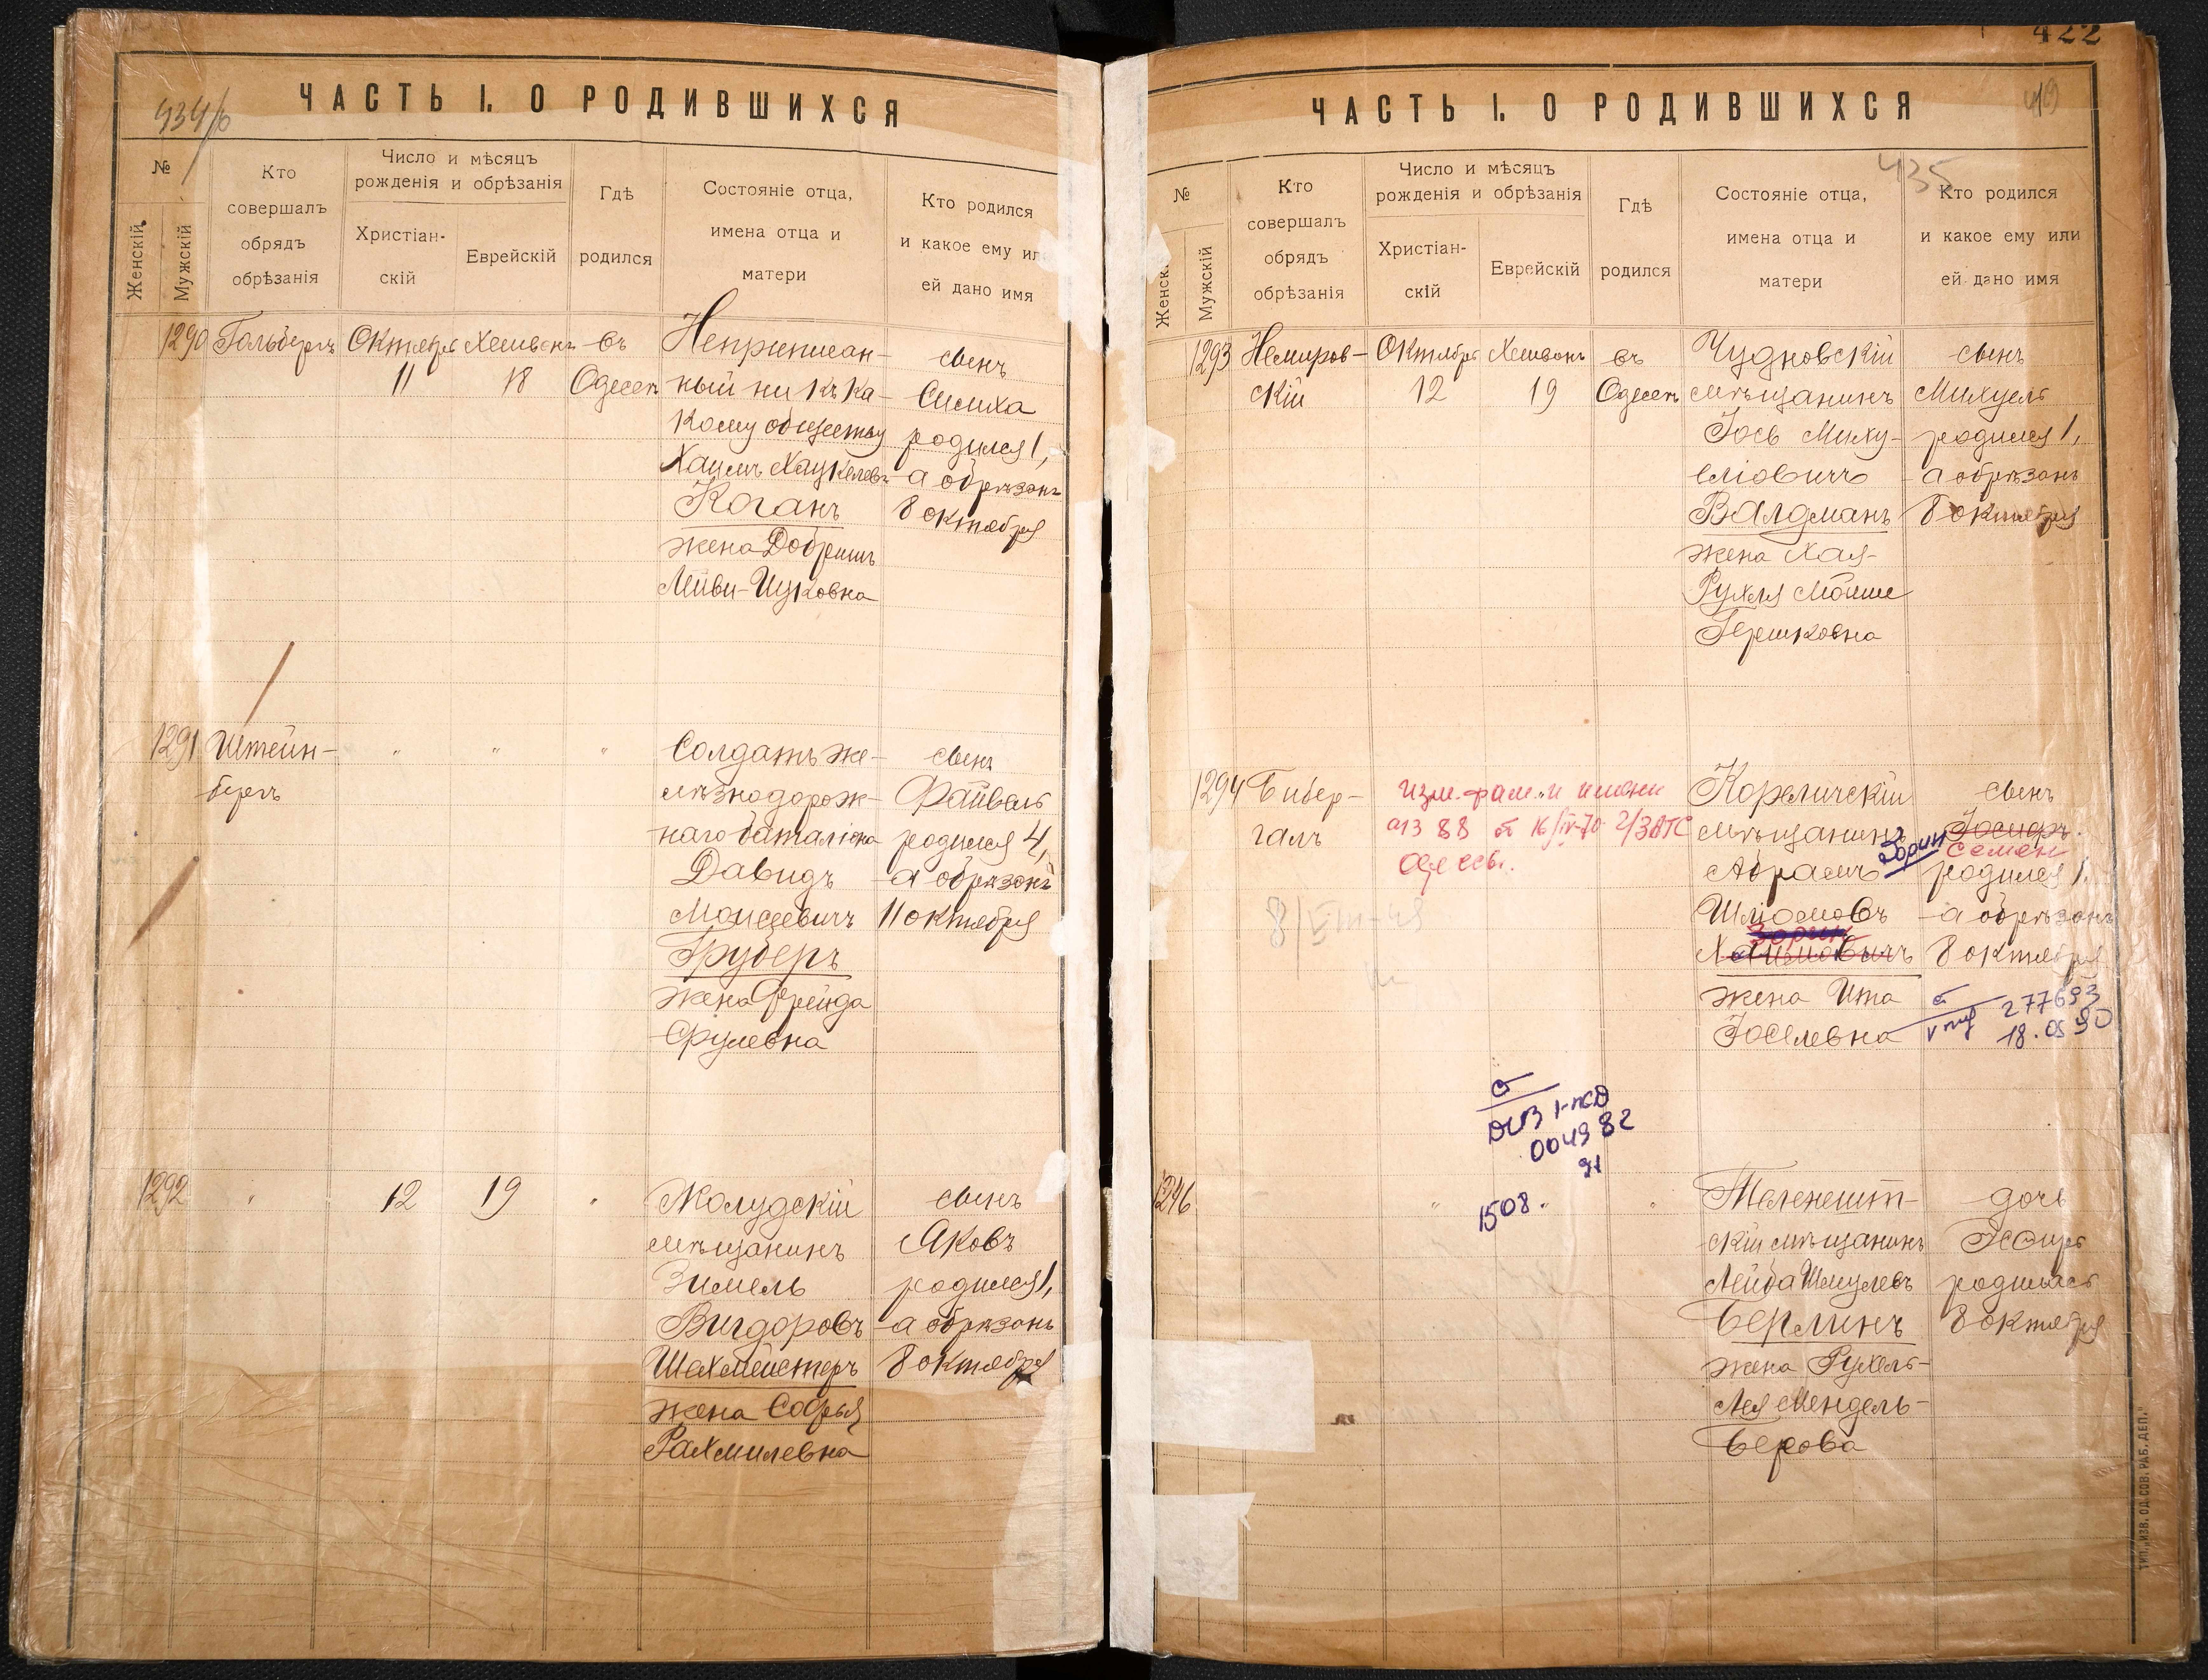 434/б
ЧАСТЬ I. О РОДИВШИХСЯ
№
Женскій.
Мужскій
Кто
совершалъ
обрядъ
обрѣзанія
Число и мѣсяцъ
рожденія и обрѣзанія
Христіан-
скій
Еврейскій
Гдѣ
родился
Состояніе отца,
имена отца и
матери
Кто родился
и какое ему ил
ей дано имя
1290
Гольберъ
Октября
11
Хешванъ
18
въ
Одессѣ
Неприписан-
ный ни къ ка-
кому обществу
Хаимъ Хацкелевъ
Коганъ
жена Добришъ
Лейви-Ицковна
сынъ
Симха
родился 1,
а обрѣзанъ
8 октября
1291
Штейн-
бергъ
"
"
"
Солдатъ же-
лѣзнодорож-
наго баталіона
Давидъ
Моисеевичъ
Груберъ
жена Фрейда
Срулевна
сынъ
Файвель
родился 4,
а обрѣзанъ
11 октября
1292
"
12
19
"
Жолудскій
мѣщанинъ
Зимель
Вигдоровъ
Шехмейстеръ
жена Софья
Рахмилевна
сынъ
Яковъ
родился 1,
а обрѣзанъ
8 октября
422
419
435
ЧАСТЬ I. О РОДИВШИХСЯ
№
Женск.
Мужскій
Кто
совершалъ
обрядъ
обрѣзанія
Число и мѣсяцъ
рожденія и обрѣзанія
Христіан-
скій
Еврейскій
Гдѣ
родился
Состояніе отца,
имена отца и
матери
Кто родился
и какое ему или
ей дано имя
1293
Немиров-
скій
Октября
12
Хешванъ
19
въ
Одессѣ
Чудновскій
мѣщанинъ
Іось Миху-
еліовичъ
Валдманъ
жена Хая-
Рухля Мойше
Гершковна
сынъ
Михуель
родился 1,
а обрѣзанъ
8 октября
1294
Бибер-
галъ
изм. фам. и имени
а/з 88 от 16/IV-70 г/ЗАГС
Одессы.
8/VIII-49
Кореличскій
мѣщанинъ
Абрамъ
Шліомовъ
Зорин
Хаимовичъ
жена Ита
Іоселевна
сынъ
Іосифъ.
Зорин
Семен
родился 1.
а обрѣзанъ
8 октября
277693
18.05 90
I-ЖД
004982
91
1246
"
1508.
"
Теленешт-
скій мѣщанинъ
Лейба Шмулевъ
Берлинъ
жена Рухель-
Лея Мендель-
Берова
дочь
Эсѳирь
родилась
8 октября
ТИП. „ИЗВ. ОД. СОВ. РАБ. ДЕП."